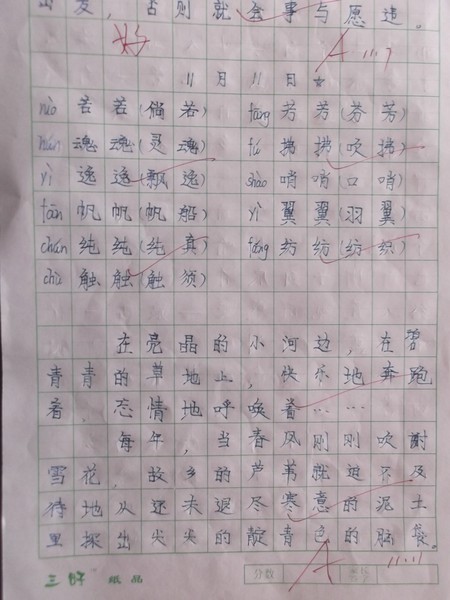 出发，否则就会事与愿违。
好 A 11.7
11月11日
ruò 若 若(倘若) fāng 芳 芳(芬芳)
hún 魂 魂(灵魂) fú 拂 拂(吹拂)
yì 逸 逸(飘逸) shào 哨 哨(口哨)
fān 帆 帆(帆船) yì 翼 翼(羽翼)
chún 纯 纯(纯真) fǎng 纺 纺(纺织)
chù 触 触(触须)
在亮晶的小河边，在碧
青青的草地上，快乐地奔跑
着，恣情地呼唤着……
每年，当春风刚刚吹谢
雪花，故乡的芦苇就迫不及
待地从还未退尽寒意的泥土
里探出尖尖的靛青色的脑袋。
A 11.11
三好 纸品 分数